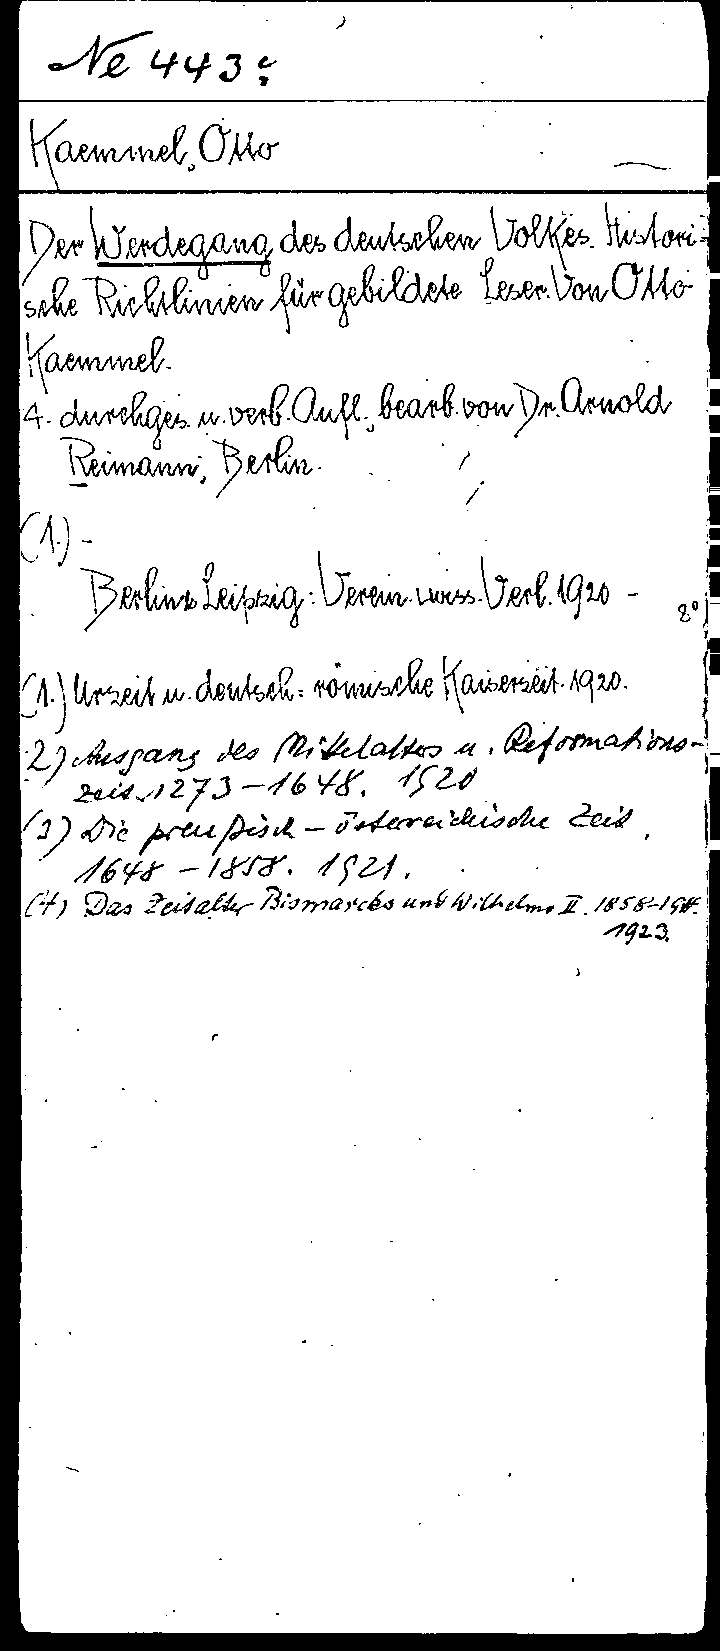 Ne 443:
Kaemmel, Otto
Der Werdegang des deutschen Volkes. Histori-
sche Richtlinien für gebildete Leser. Von Otto
Kaemmel.
4. durchges. u. verb. Aufl., bearb. von Dr. Arnold
Reimann, Berlin.
(1.) -
Berlin & Leipzig: Verein. wiss. Verl. 1920 - 8°
(1.) Urzeit u. deutsch-römische Kaiserzeit. 1920.
2) Ausgang des Mittelalters u. Reformations-
zeit. 1273-1648. 1920
(3) Die preußisch-österreichische Zeit,
1648-1858. 1921.
(4) Das Zeitalter Bismarcks und Wilhelms II. 1858-
1923.